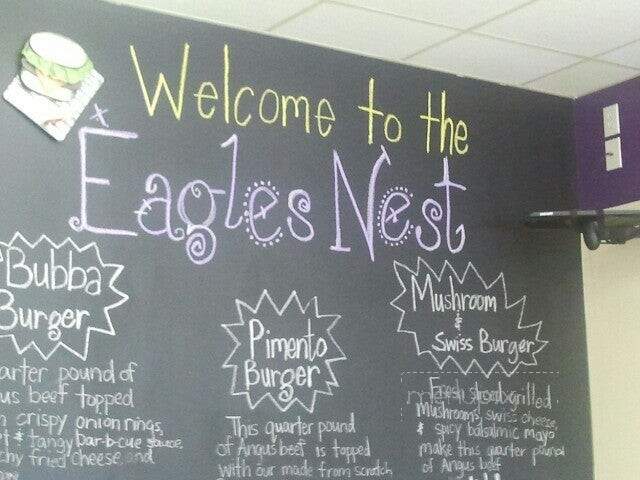 Welcome to the
Eagles Nest
Bubba
Burger
arter pound of
us beef topped
crispy onion rings,
& tangy Bar-b-cue sauce,
chy fried cheese, and
Pimento
Burger
This quarter pound
of Angus beef is topped
with our made from scratch
Mushroom
&
Swiss Burger
Fresh
Mushrooms, swiss cheese,
& spicy balsalmic mayo
make this quarter pound
of Angus